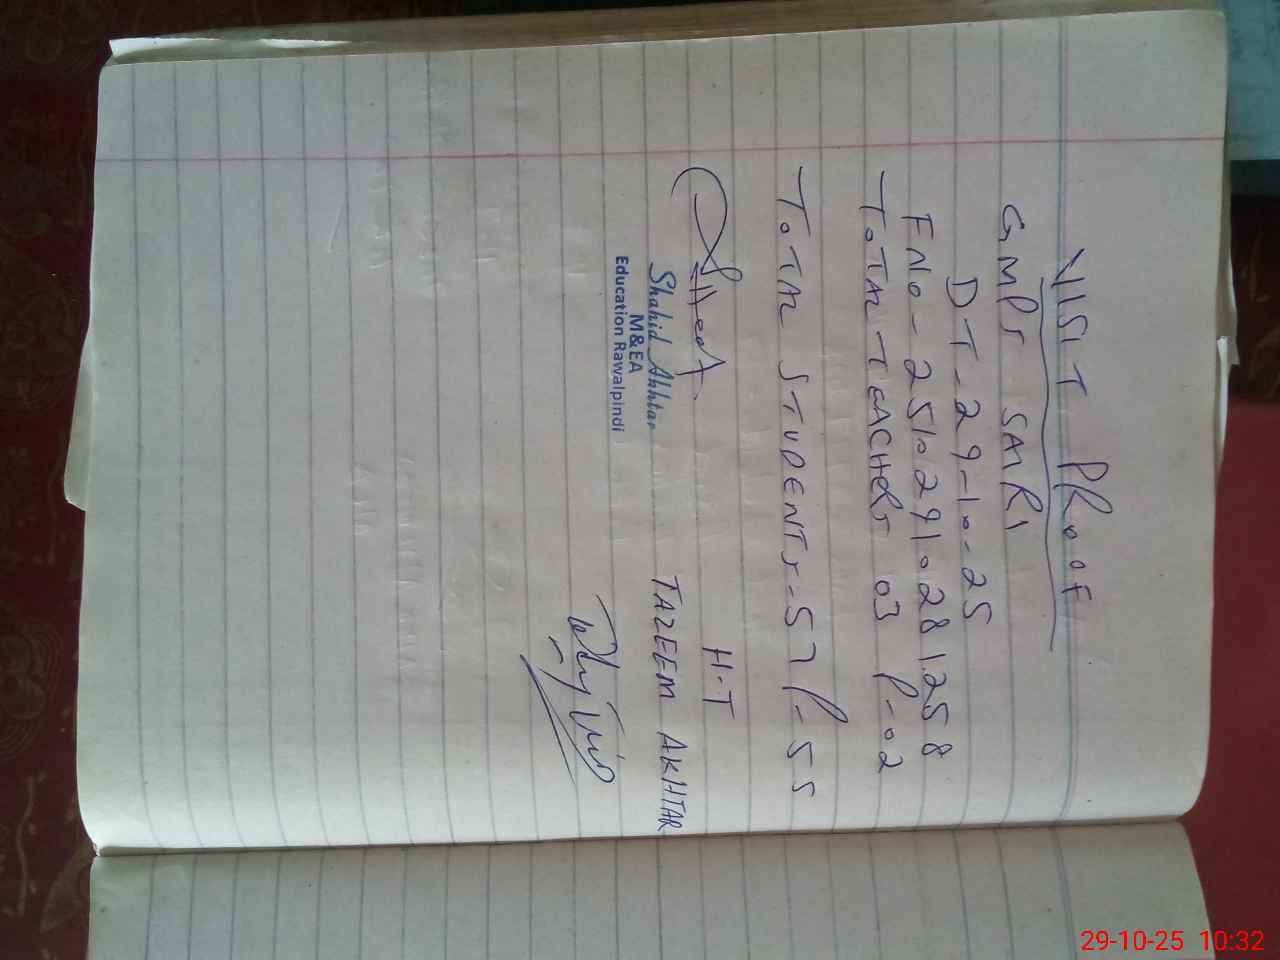 VISIT PROOF
GMPS SAIRI
DT-29-10-25
FNO-25102910281258
TOTAL TEACHERS 03 P-02
TOTAL STUDENTS-57 P-55
Shahid Akhtar
M&EA
Education Rawalpindi
H-T
TAZEEM AKHTAR
29-10-25 10:32